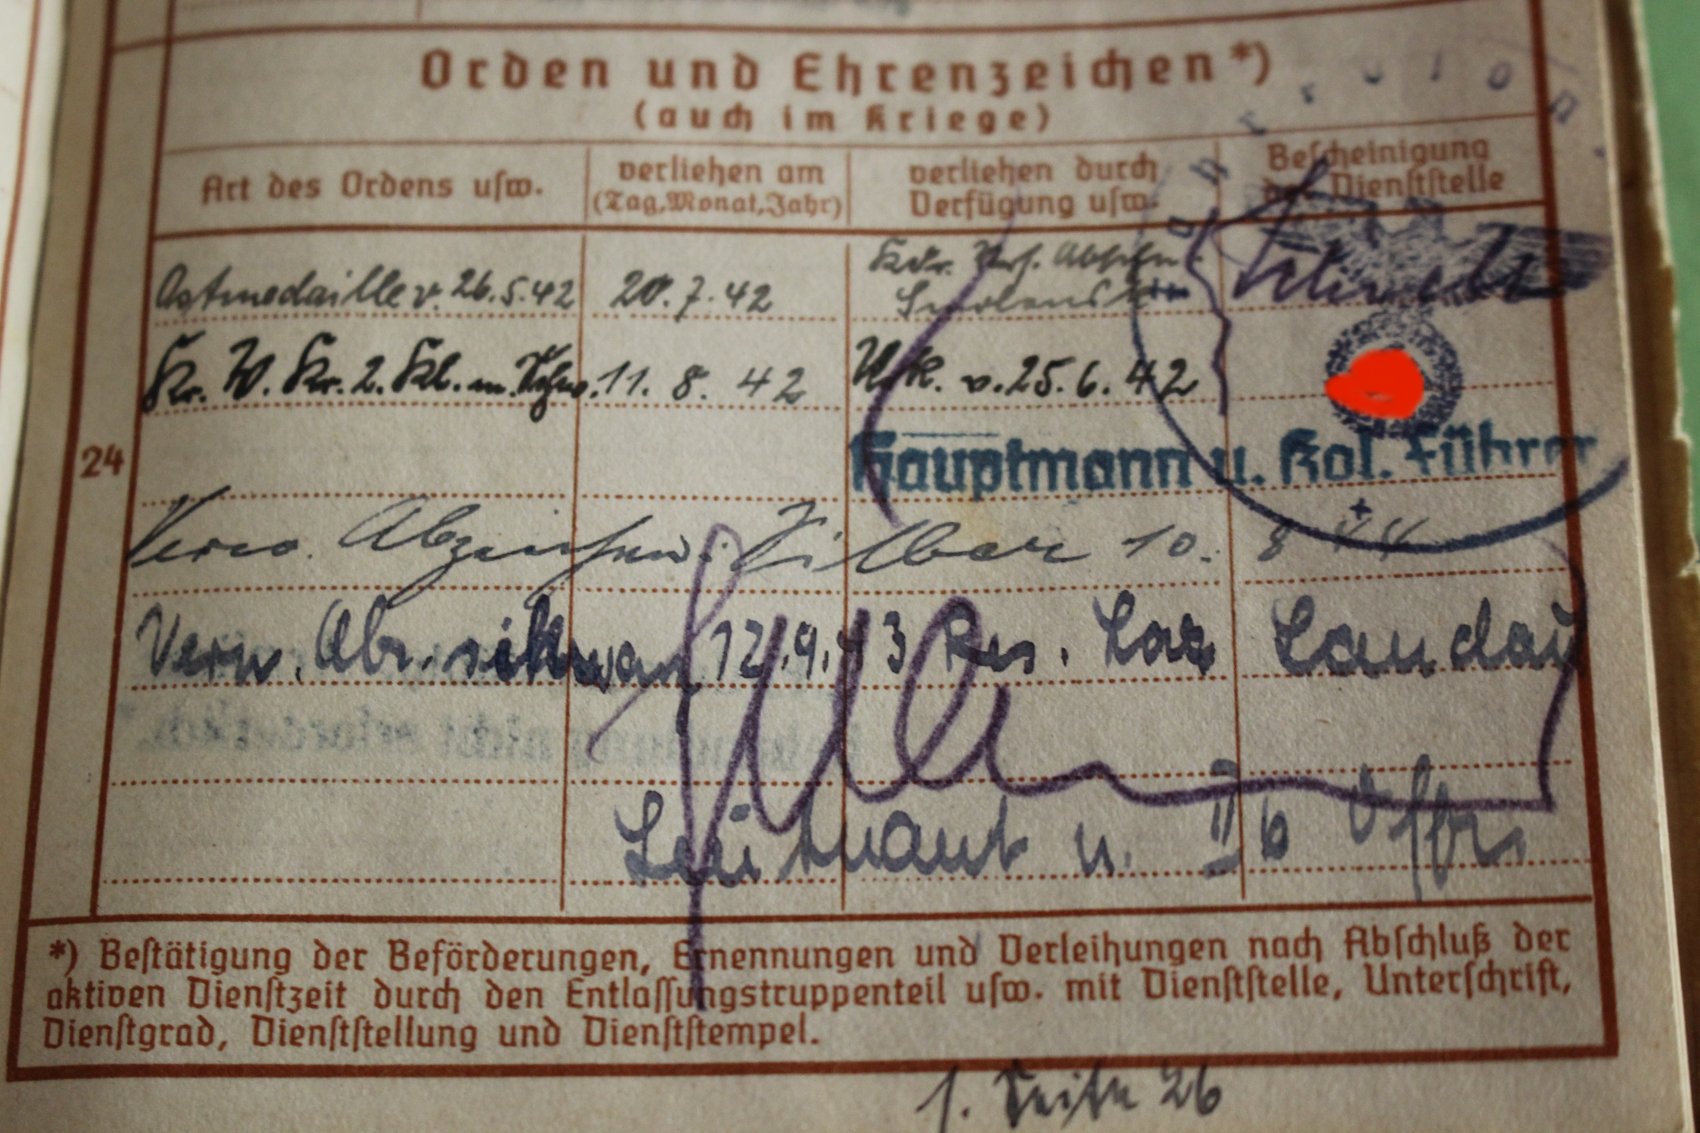 Orden und Ehrenzeichen*)
(auch im Kriege)
Art des Ordens usw.
verliehen am
(Tag, Monat, Jahr)
verliehen durch
Verfügung usw.
Bescheinigung
der Dienststelle
Ostmedaille v. 26.5.42 20.7.42
Kr. V. Kr. 2. Kl. m. Schw. 11. 8. 42 v. 25.6.42
24
Hauptmann u. Kol. Führer
Verw. Abzeichen Silber 10. 8 44
Verw. Abz. schwarz 12.9.43 Res. Laz Landau
Leutnant u. II b Offz.
*) Bestätigung der Beförderungen, Ernennungen und Verleihungen nach Abschluß der
aktiven Dienstzeit durch den Entlassungstruppenteil usw. mit Dienststelle, Unterschrift,
Dienstgrad, Dienststellung und Dienststempel.
s. Seite 26